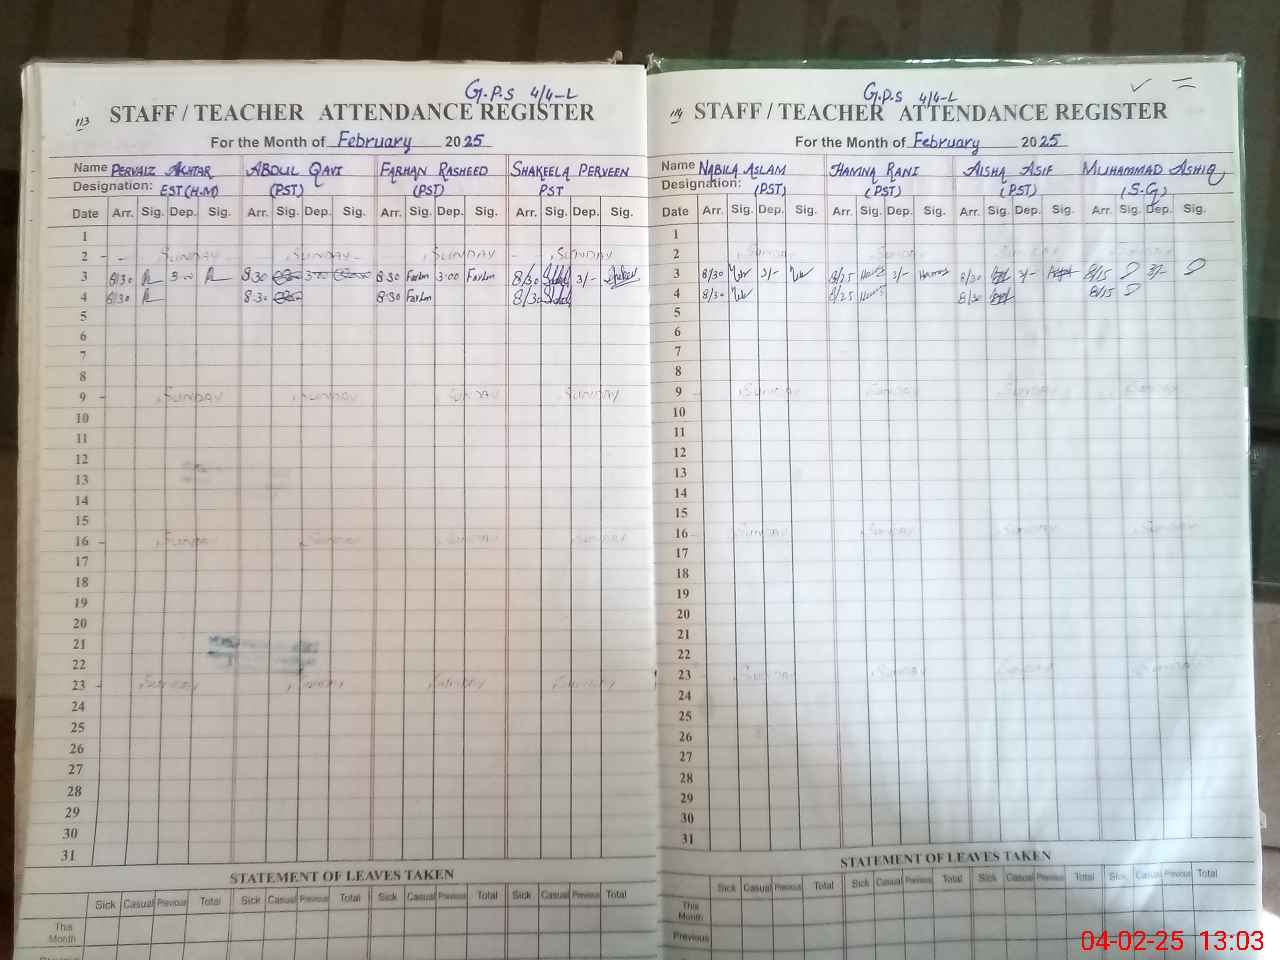 G.P.S 4/4-L
113 STAFF / TEACHER ATTENDANCE REGISTER
For the Month of February 2025
Name PERVAIZ AKHTAR ABDUL QAVI FARHAN RASHEED SHAKEELA PERVEEN
Designation: EST (H.M) (PST) (PST) PST
Date Arr. Sig. Dep. Sig. Arr. Sig. Dep. Sig. Arr. Sig. Dep. Sig. Arr. Sig. Dep. Sig.
1
2 - SUNDAY SUNDAY SUNDAY SUNDAY
3 8/30 3:00 8:30 3:00 8:30 Farhn 3:00 Farhn 8/30 3/-
4 8/30 8:30 8:30 Farhn 8/30
5
6
7
8
9 - SUNDAY SUNDAY SUNDAY SUNDAY
10
11
12
13
14
15
16 - SUNDAY SUNDAY SUNDAY SUNDAY
17
18
19
20
21
22
23 - SUNDAY SUNDAY SUNDAY SUNDAY
24
25
26
27
28
29
30
31
STATEMENT OF LEAVES TAKEN
Sick Casual Previous Total Sick Casual Previous Total Sick Casual Previous Total Sick Casual Previous Total
This Month
G.P.S 4/4-L
114 STAFF / TEACHER ATTENDANCE REGISTER
For the Month of February 2025
Name NABILA ASLAM HAMNA RANI AISHA ASIF MUHAMMAD ASHIQ
Designation: (PST) (PST) (PST) (S.G)
Date Arr. Sig. Dep. Sig. Arr. Sig. Dep. Sig. Arr. Sig. Dep. Sig. Arr. Sig. Dep. Sig.
1
2 SUNDAY SUNDAY SUNDAY SUNDAY
3 8/30 3/- 8/25 3/- 8/30 3/- 8/15 3/-
4 8/30 8/25 8/30 8/15
5
6
7
8
9 - SUNDAY SUNDAY SUNDAY SUNDAY
10
11
12
13
14
15
16 - SUNDAY SUNDAY SUNDAY SUNDAY
17
18
19
20
21
22
23 - SUNDAY SUNDAY SUNDAY SUNDAY
24
25
26
27
28
29
30
31
STATEMENT OF LEAVES TAKEN
Sick Casual Previous Total Sick Casual Previous Total Sick Casual Previous Total Sick Casual Previous Total
This Month
Previous
04-02-25 13:03